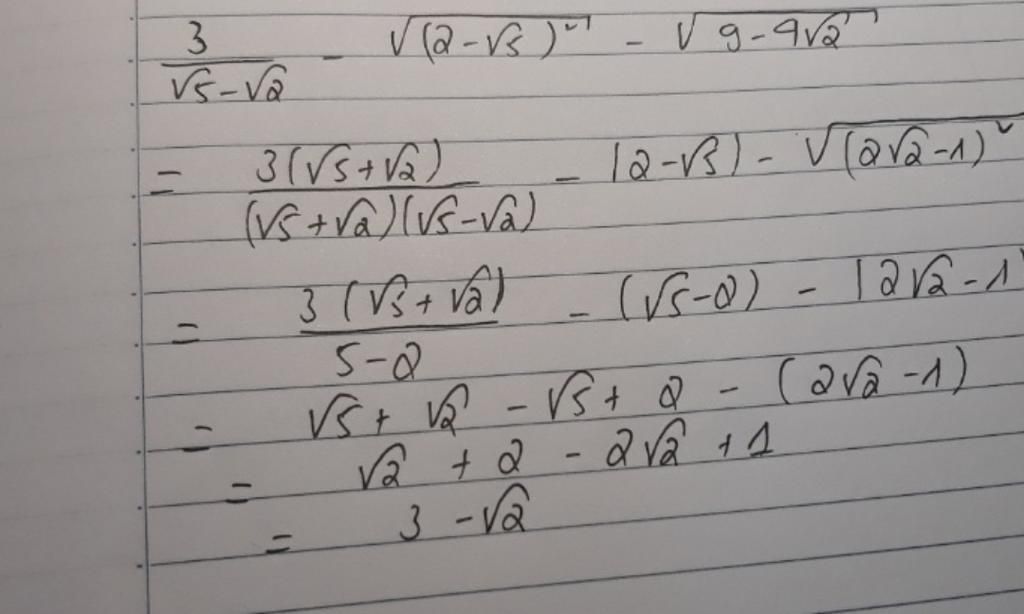 3/(√5-√2) - √((2-√5)²) - √(9-4√2)
= 3(√5+√2)/((√5+√2)(√5-√2)) - |2-√5| - √((2√2-1)²)
= 3(√5+√2)/(5-2) - (√5-2) - |2√2-1|
= √5+√2 - √5+2 - (2√2-1)
= √2 + 2 - 2√2 + 1
= 3 - √2